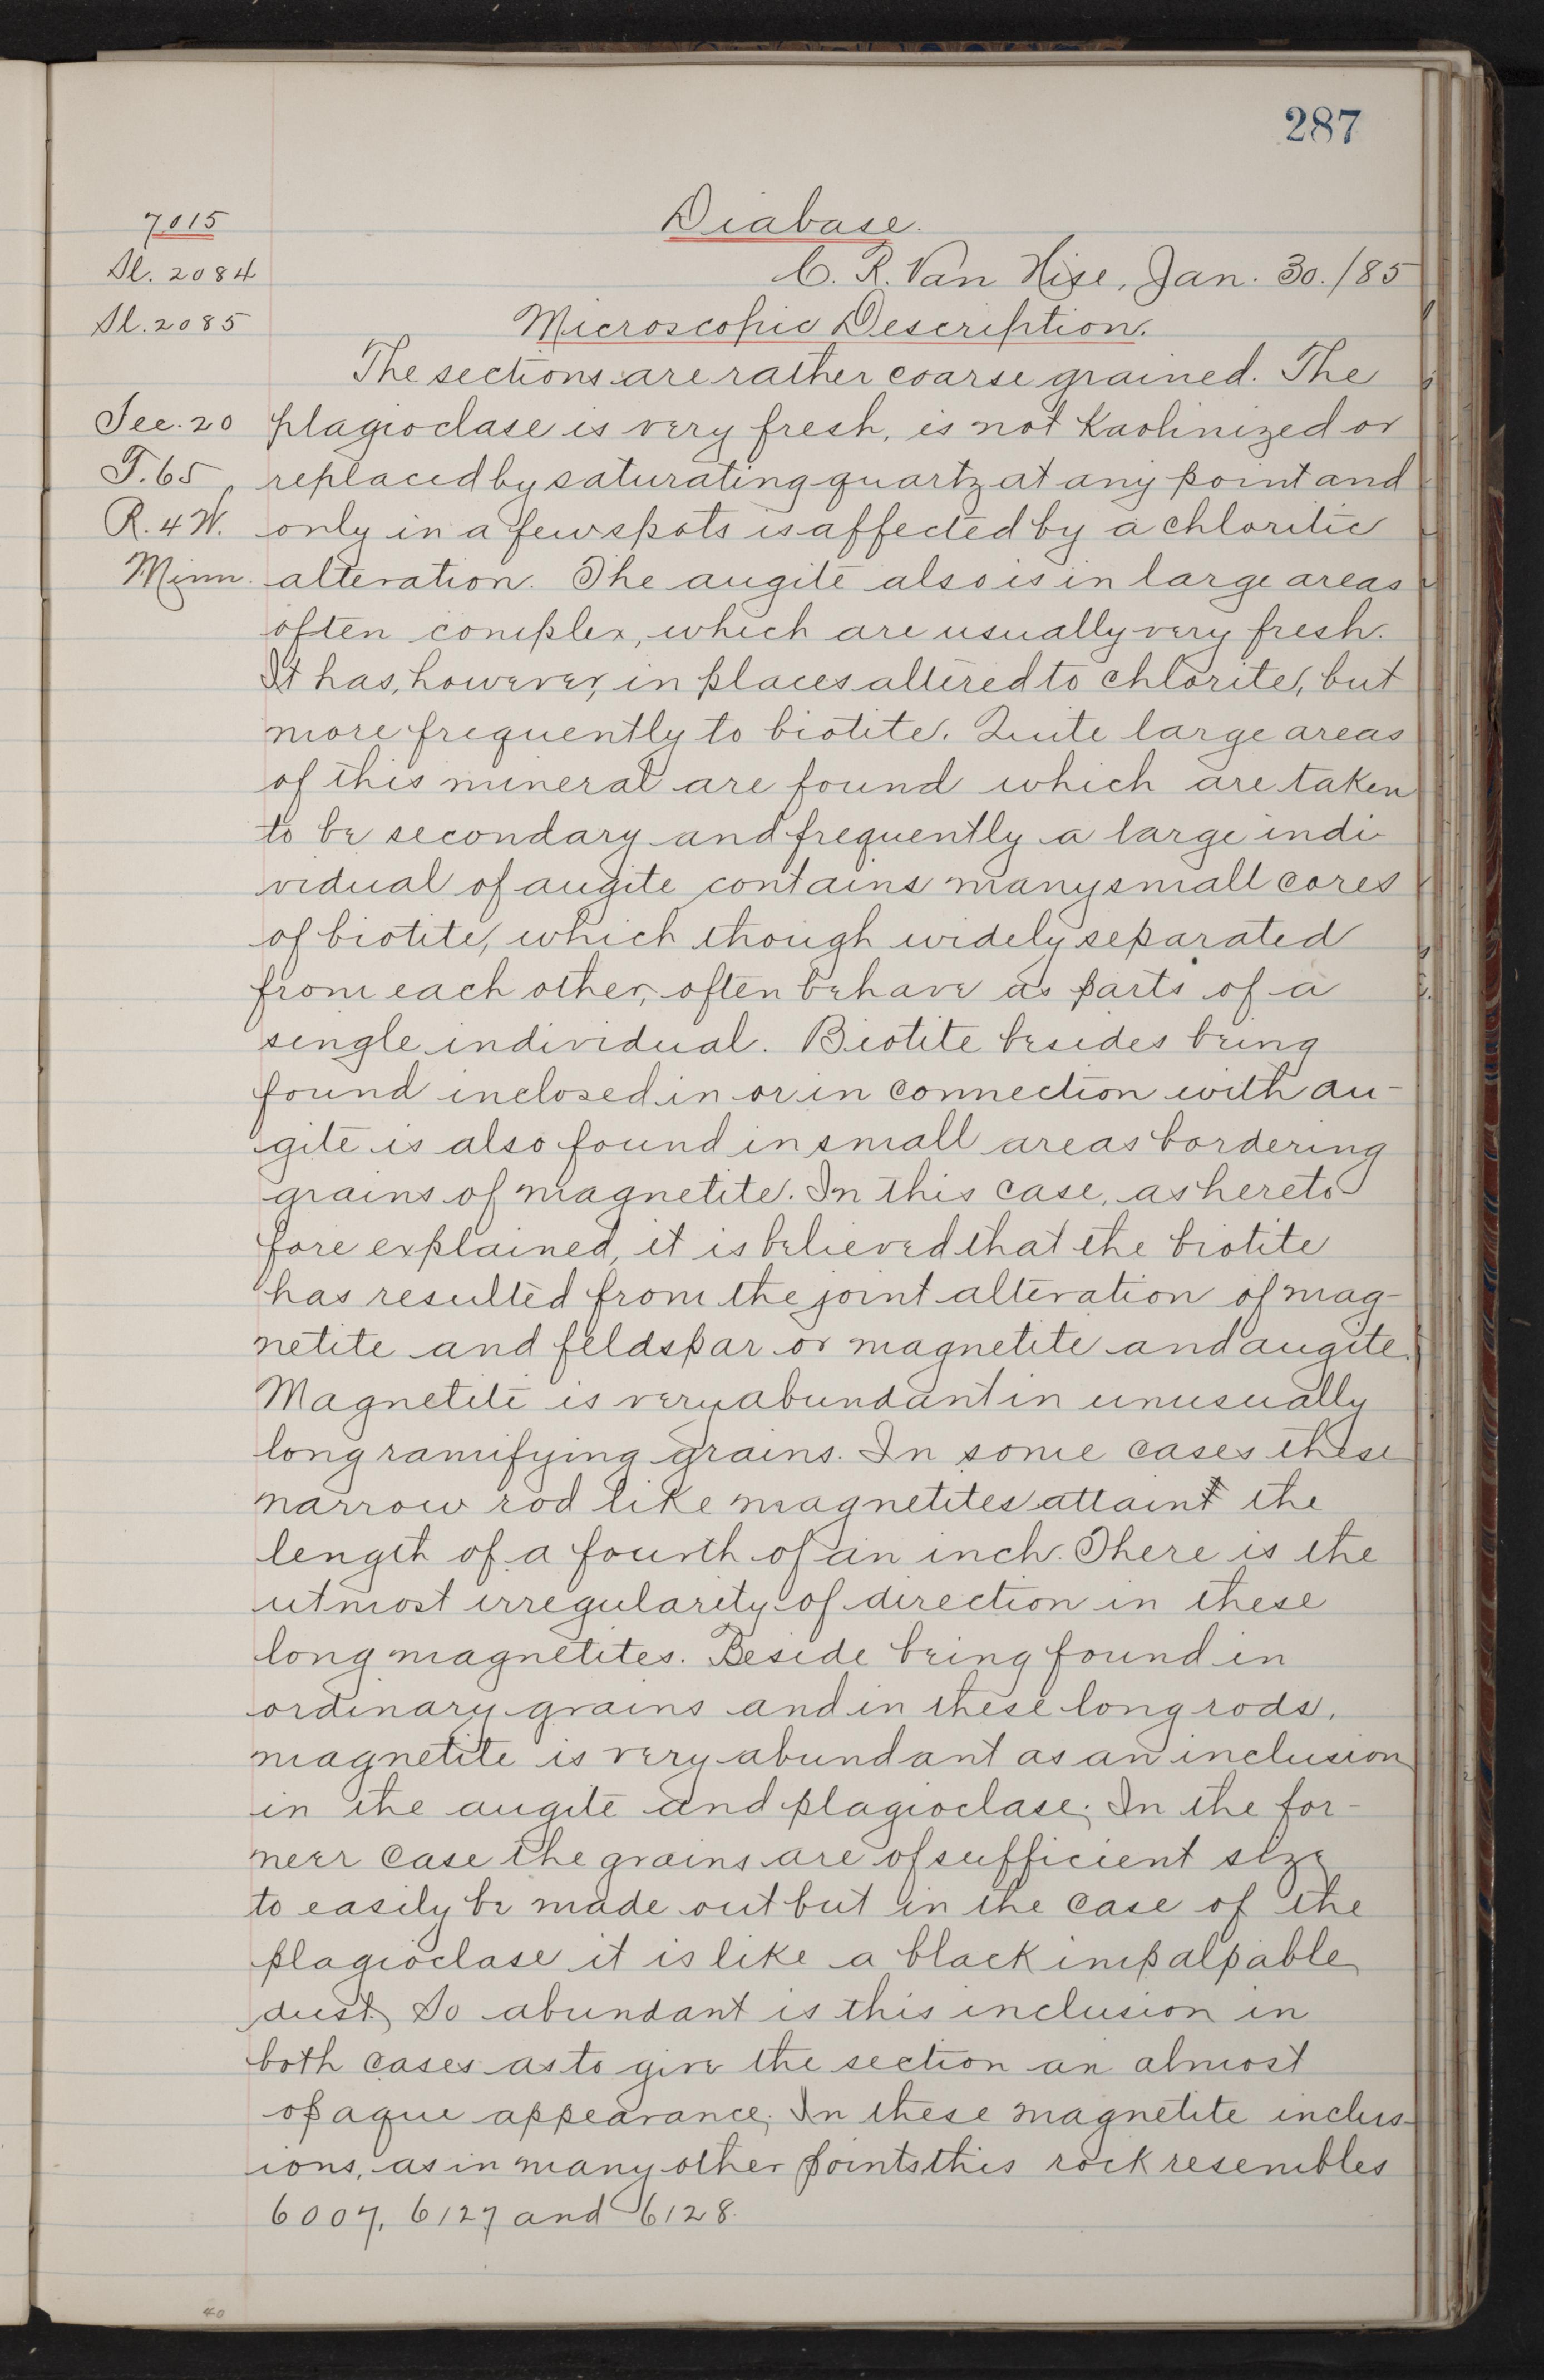 287
7015
Diabase.
Sl. 2084
C. R. Van Hise, Jan. 30./85
Sl. 2085
Microscopic Description.
The sections are rather coarse grained. The
Sec. 20
plagioclase is very fresh, is not Kaolinized or
T. 65
replaced by saturating quartz at any point and
R. 4 W.
only in a few spots is affected by a chloritic
Minn.
alteration. The augite also is in large areas
often complex, which are usually very fresh.
It has, however, in places altered to chlorite, but
more frequently to biotite. Quite large areas
of this mineral are found which are taken
to be secondary and frequently a large indi-
vidual of augite contains many small cores
of biotite, which though widely separated
from each other, often behave as parts of a
single individual. Biotite besides being
found inclosed in or in connection with au-
gite is also found in small areas bordering
grains of magnetite. In this case, as hereto
fore explained, it is believed that the biotite
has resulted from the joint alteration of mag-
netite and feldspar or magnetite and augite.
Magnetite is very abundant in unusually
long ramifying grains. In some cases these
narrow rod like magnetites attain the
length of a fourth of an inch. There is the
utmost irregularity of direction in these
long magnetites. Beside being found in
ordinary grains and in these long rods,
magnetite is very abundant as an inclusion
in the augite and plagioclase. In the for-
meer case the grains are of sufficient size
to easily be made out but in the case of the
plagioclase it is like a black impalpable
dust. So abundant is this inclusion in
both cases as to give the section an almost
opaque appearance. In these magnetite inclus-
ions, as in many other points this rock resembles
6007, 6127 and 6128.
40